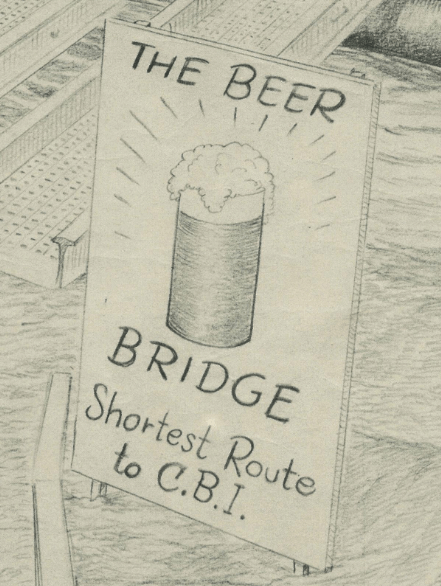 THE BEER
BRIDGE
Shortest Route
to C.B.I.